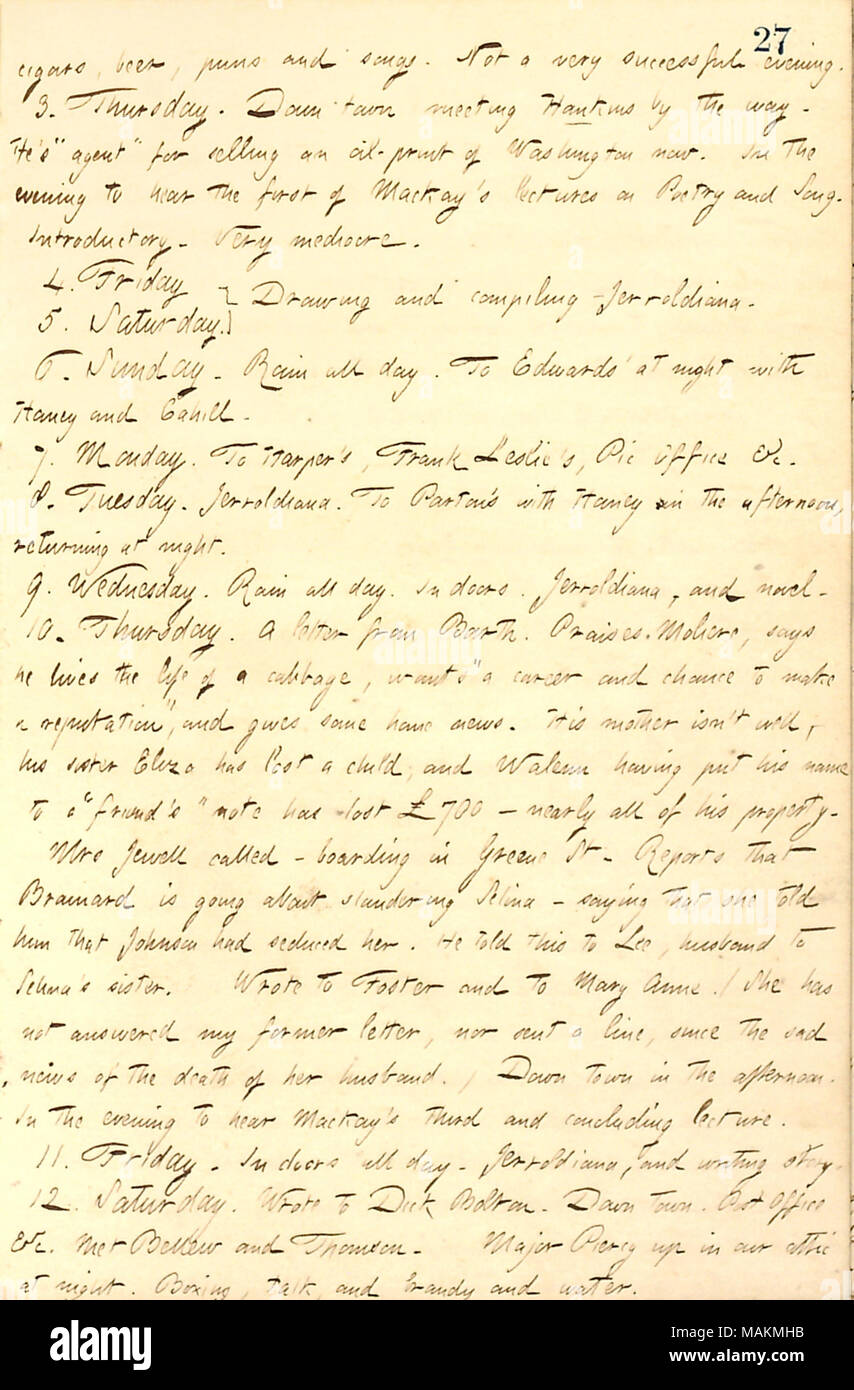 27
cigars, beer, puns and songs. Not a very successful evening.
3. Thursday. Down town meeting Hankins by the way.
He's "agent" for selling an oil-print of Washington now. In the
evening to hear the first of Mackay's lectures on Poetry and Song.
Introductory. Very mediocre.
4. Friday } Drawing and compiling Jerroldiana.
5. Saturday. }
6. Sunday. Rain all day. To Edwards' at night with
Haney and Cahill.
7. Monday. To Harper's, Frank Leslie's, Pic Office &c.
8. Tuesday. Jerroldiana. To Parton's with Haney in the afternoon,
returning at night.
9. Wednesday. Rain all day. In doors. Jerroldiana, and novel.
10. Thursday. A letter from Barth. Praises Moliere, says
he lives the life of a cabbage, wants "a career and chance to make
a reputation", and gives some home news. His mother isn't well,
his sister Eliza has lost a child, and Walenn having put his name
to a "friend's" note has lost £700 — nearly all of his property.
Mrs Jewell called — boarding in Greene St. Reports that
Brainard is going about slandering Selina — saying that she told
him that Johnson had seduced her. He told this to Lee, husband to
Selina's sister. Wrote to Foster and to Mary Anne. / She has
not answered my former letter, nor sent a line, since the sad
news of the death of her husband. / Down town in the afternoon.
In the evening to hear Mackay's third and concluding lecture.
11. Friday. In doors all day. Jerroldiana, and writing story.
12. Saturday. Wrote to Dick Bolton. Down town. Post Office
&c. Met Bellew and Thomson. Major Piercy up in our attic
at night. Boxing, talk, and brandy and water.
alamy
Image ID: MAKMHB
www.alamy.com